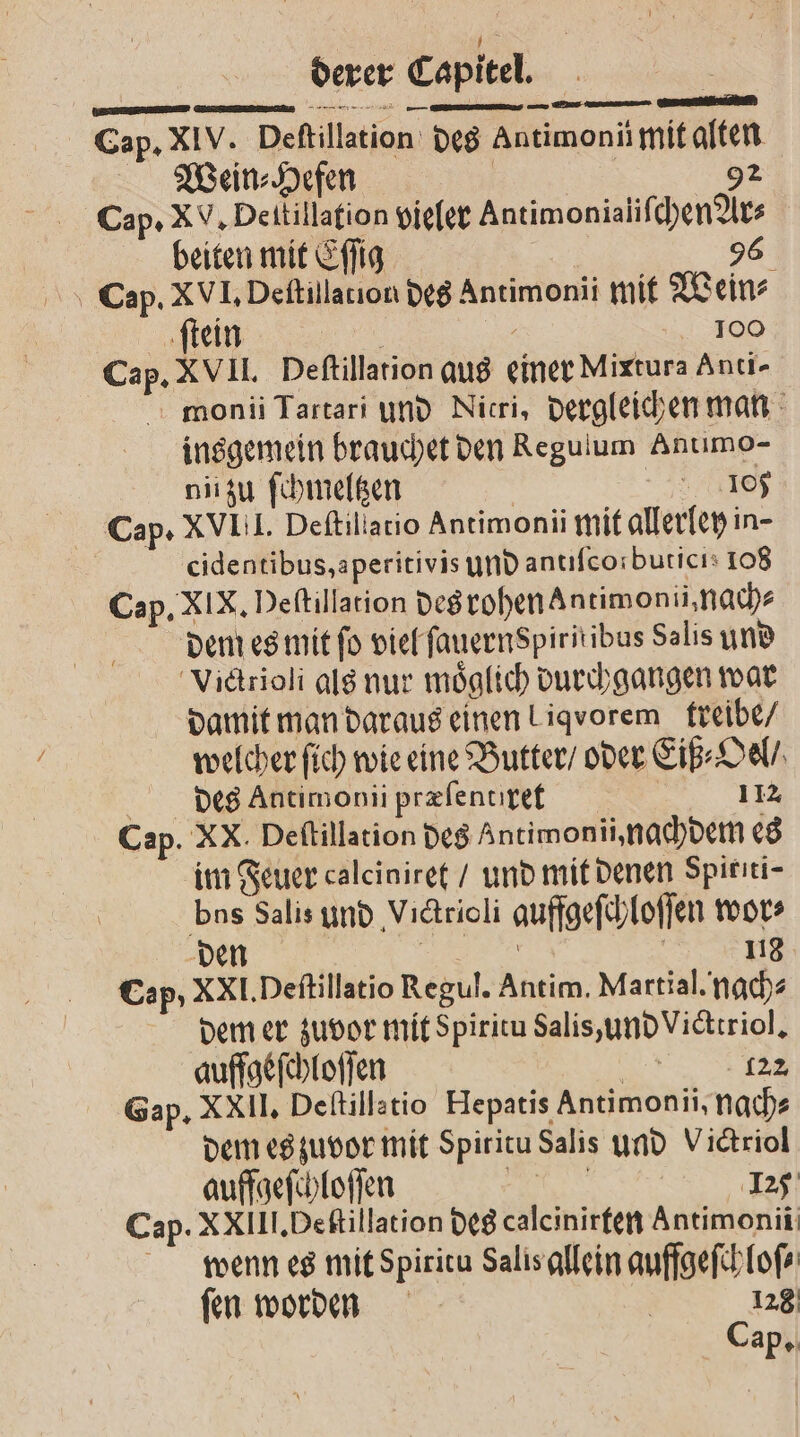 derer Capitel.
Cap. XIV. Deſtillation des Antimonii mit alten
Wein-Hefen 92
Cap. XV. Deſtillation vieler Antimonialiſchen Ar-
beiten mit Eſſig 96
Cap. XVI. Deſtillation des Antimonii mit Wein-
ſtein 100
Cap. XVII. Deſtillation aus einer Mixtura Anti-
monii Tartari und Nitri, dergleichen man
insgemein brauchet den Regulum Antimo-
nii zu ſchmeltzen 105
Cap. XVIII. Deſtillatio Antimonii mit allerley in-
cidentibus, aperitivis und antiſcorbuticis 108
Cap. XIX. Deſtillation des rohen Antimonii, nach-
dem es mit ſo viel ſauern Spiritibus Salis und
Victrioli als nur möglich durchgangen war
damit man daraus einen Liqvorem treibe/
welcher ſich wie eine Butter/ oder Eiß-Oel/
des Antimonii præſentiret 112
Cap. XX. Deſtillation des Antimonii, nachdem es
im Feuer calciniret / und mit denen Spiriti-
bns Salis und Victrioli auffgeſchloſſen wor-
den 118
Cap, XXI. Deſtillatio Regul. Antim. Martial. nach-
dem er zuvor mit Spiritu Salis, und Victtriol.
auffgeſchloſſen 122
Gap. XXII. Deſtillatio Hepatis Antimonii, nach-
dem es zuvor mit Spiritu Salis und Victriol
auffgeſchloſſen 125
Cap. XXIII. Deſtillation des calcinirten Antimonii
wenn es mit Spiritu Salis allein auffgeſchloſ-
ſen worden 128
Cap.